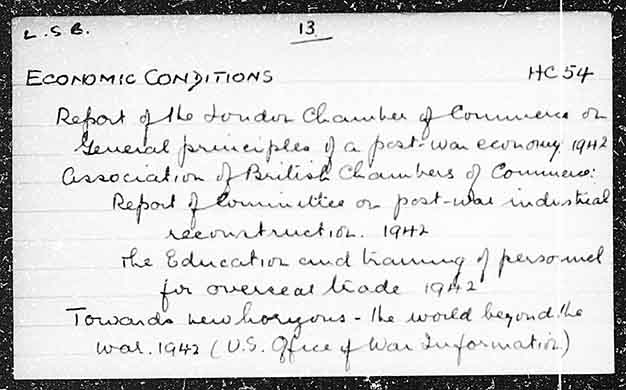 L.S.B. 13
ECONOMIC CONDITIONS HC 54
Report of the London Chamber of Commerce on
General principles of a post-war economy 1942
Association of British Chambers of Commerce:
Report of Committee on post-war industrial
reconstruction. 1942
The Education and training of personnel
for overseas trade 1942
Towards new horizons - the world beyond the
war. 1942 (U.S. Office of War Information)